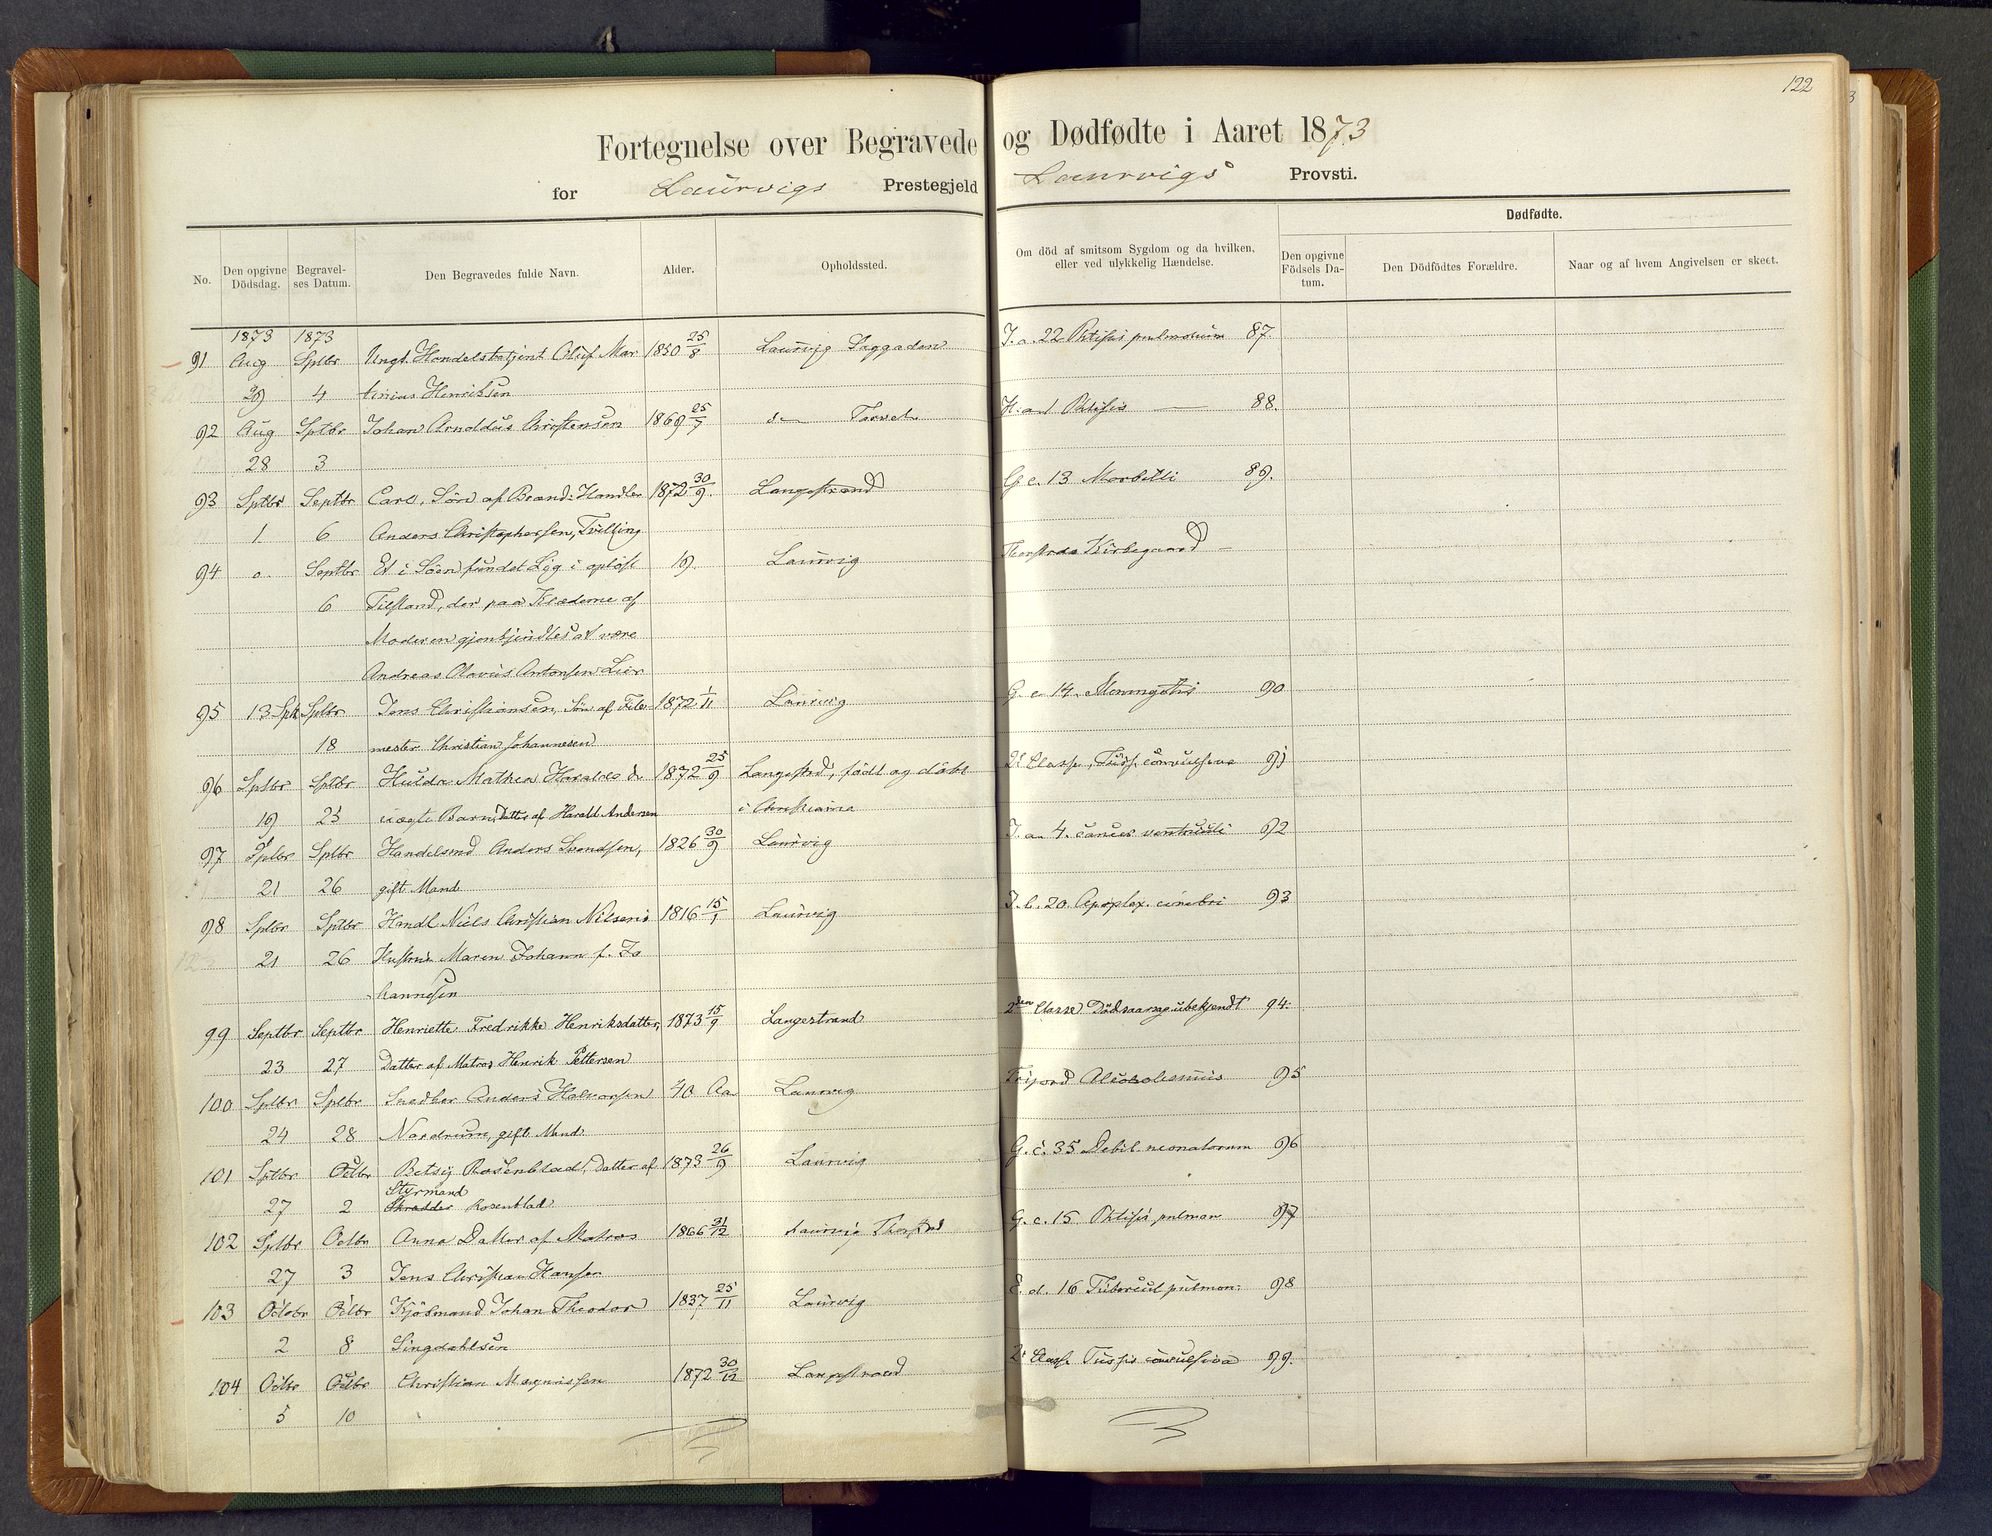 122
Fortegnelse over Begravede og Dødfødte i Aaret 1873
for Laurvigs Prestegjeld Laurvigs Provsti.
No.
Den opgivne Dödsdag.
Begravelses Datum.
Den Begravedes fulde Navn.
Alder.
Opholdssted.
Om död af smitsom Sygdom og da hvilken, eller ved ulykkelig Hændelse.
Dødfødte.
Den opgivne Födsels Datum.
Den Dödfödtes Forældre.
Naar og af hvem Angivelsen er skeet.
1873 1873
91 Aug Sptbr Ungk. Handelsbetjent Oluf Mar 1850 25/8 Laurvig Laggaden I. a. 22 Phtisis pulmonum 87.
29 4 tinius Henriksen
92 Aug Sptbr Johan Arnoldus Christensen 1869 25/7 d— Torvet H. a. 1 Phtisis — 88.
28 3
93 Sptbr Septbr Carl, Sön af Brænd: Handler 1872 30/9. Langestrand G. c. 13 Morbilli 89.
1. 6 Anders Christophersen, Tvilling
94 o. Septbr Et i Söen fundet Lig i oplöst 19. Laurvig Thorstrds Kirkegaard —
6 Tilstand, der paa Klæderne af
Moderen gjenkjendtes at være
Andreas Olavus Antonsen Lier
95 13 Spt Sptbr Jens Christiansen, Sön af File 1872 1/11 Laurvig G. c. 14. Meningitis 90
18 mester Christian Johannesen
96 Sptbr Sptbr Hulda Mathea Haralds d 1872 25/9 Langestrd, födt og döbt 2d Classe, Tuss. convulsiva 91
19 23 uægte Barn, Datter af Harald Andersen i Christiania
97 Sptbr Sptbr Handelsmd Anders Svendsen, 1826 30/9 Laurvig I. a. 4. cancer ventriculi 92
21 26 gift Mand
98 Sptbr Sptbr Handl Niels Christian Nilsens 1816 15/1 Laurvig I. b. 20. Apoplex. cerebri 93
21 26 Hustru Maren Johann f. Jo
hannesen
99 Septbr Septbr Henriette Fredrikke Henriksdatter, 1873 15/9 Langestrand 2den Classe Dödsaarsag ubekjendt 94.
23 27 Datter af Matros Henrik Pettersen
100 Sptbr Sptbr Snedker Anders Halvorsen 40 Aa Laurvig Frijord Alcoholismus 95
24 28 Nordrum, gift Mand
101 Sptbr Octbr Betsy Rosenblad, Datter af 1873 26/9 Laurvig G. c. 35 Debil. neonatorum 96
Styrmand
27 2 Skrædder Rosenblad
102 Sptbr Octbr Anna Datter af Matros 1866 31/12 Laurvig Thorstrd G. c. 15 Phtisis pulmon 97
27 3 Jens Christian Hansen
103 Octobr Octbr Kjösmand Johan Theodor 1837 25/11 Laurvig E. d. 16 Tubercul pulmon: 98
2 8 Lingdahlsen
104 Octbr Octbr Christian Magnussen 1872 30/12 Langestrand 2d Classe Tussis convulsiva 99.
5 10